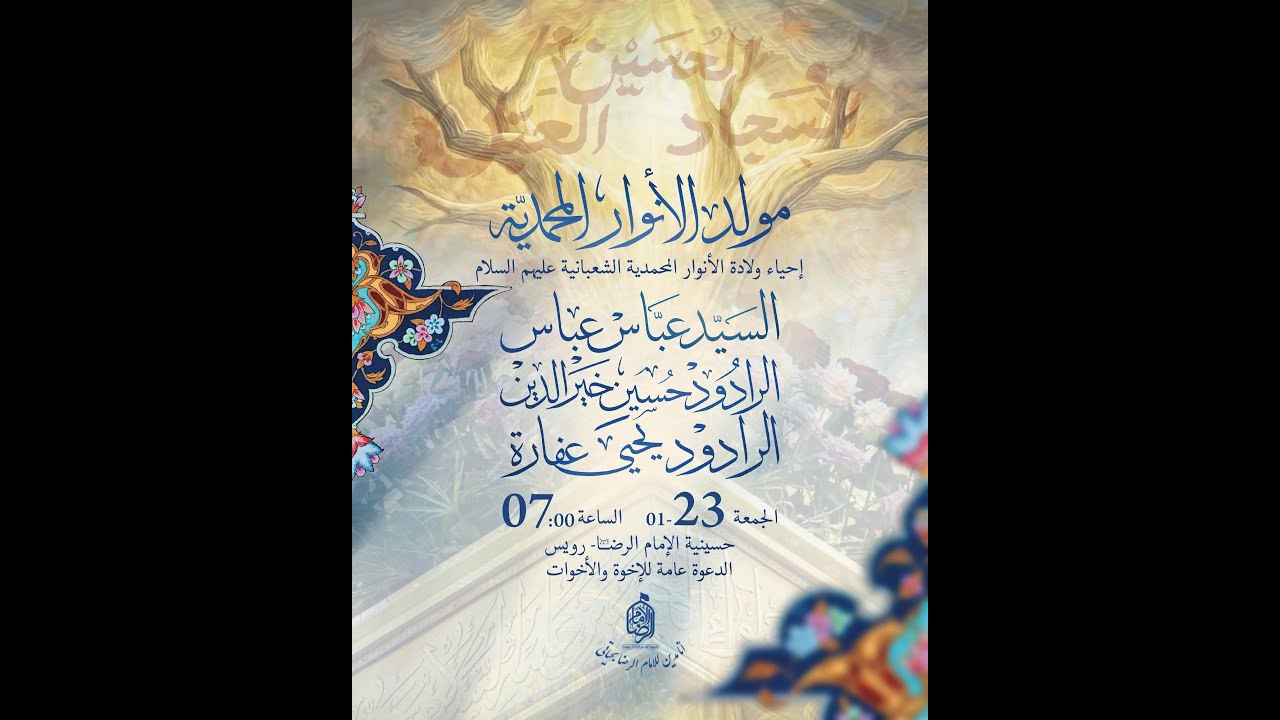 الحُسَين
السجاد العباس
مولد الأنوار المحمديّة
إحياء ولادة الأنوار المحمدية الشعبانية عليهم السلام
السَيّد عبَّاس عباس
الرادُود حُسين خَير الدين
الرادود يحيى عفارة
الجمعة 23-01 الساعة 07:00
حسينية الإمام الرضا - رويس
الدعوة عامة للإخوة والأخوات
الإمام الرضا